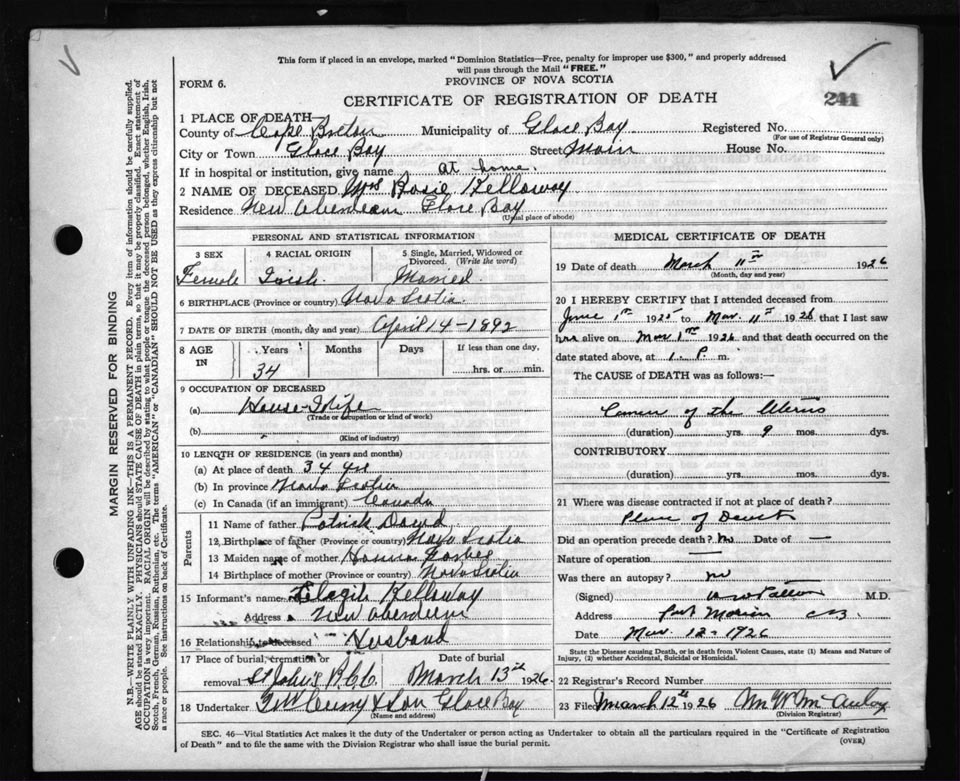 This form if placed in an envelope, marked "Dominion Statistics—Free, penalty for improper use $300," and properly addressed
will pass through the Mail "FREE."
FORM 6.
PROVINCE OF NOVA SCOTIA
CERTIFICATE OF REGISTRATION OF DEATH
241
1 PLACE OF DEATH—
County of Cape Breton Municipality of Glace Bay Registered No.
(For use of Registrar General only)
City or Town Glace Bay Street Main House No.
If in hospital or institution, give name at home.
2 NAME OF DECEASED Mrs Rosie Kelloway
Residence New Aberdeen Glace Bay
(Usual place of abode)
PERSONAL AND STATISTICAL INFORMATION
3 SEX 4 RACIAL ORIGIN 5 Single, Married, Widowed or Divorced. (Write the word)
Female Irish Married
6 BIRTHPLACE (Province or country) Nova Scotia
7 DATE OF BIRTH (month, day and year) April 14-1892
8 AGE IN Years Months Days If less than one day,
34 hrs. or min.
9 OCCUPATION OF DECEASED
(a) House-Wife
(Trade or occupation or kind of work)
(b)
(Kind of industry)
10 LENGTH OF RESIDENCE (in years and months)
(a) At place of death 34 yrs
(b) In province Nova Scotia
(c) In Canada (if an immigrant) Canada
Parents
11 Name of father Patrick
12 Birthplace of father (Province or country) Nova Scotia
13 Maiden name of mother Forbes
14 Birthplace of mother (Province or country) Nova Scotia
15 Informant's name Kelloway
Address New Aberdeen
16 Relationship to deceased Husband
17 Place of burial, cremation or removal St John's Date of burial March 13th 1926
18 Undertaker & Son Glace Bay
(Name and address)
MEDICAL CERTIFICATE OF DEATH
19 Date of death March 11th 1926
(Month, day and year)
20 I HEREBY CERTIFY that I attended deceased from
June 1st 1925 to Mar. 11th 1926 that I last saw
her alive on Mar 1st 1926 and that death occurred on the
date stated above, at 1. P. m.
The CAUSE of DEATH was as follows:—
Cancer of the Uterus
(duration) yrs. 9 mos. dys.
CONTRIBUTORY
(duration) yrs. mos. dys.
21 Where was disease contracted if not at place of death?
Place of Death
Did an operation precede death? No Date of —
Nature of operation —
Was there an autopsy? no
(Signed) M.D.
Address Port Morien C.B.
Date Mar. 12-1926
State the Disease causing Death, or in death from Violent Causes, state (1) Means and Nature of Injury, (2) whether Accidental, Suicidal or Homicidal.
22 Registrar's Record Number
23 Filed March 12th 1926
(Division Registrar)
SEC. 46—Vital Statistics Act makes it the duty of the Undertaker or person acting as Undertaker to obtain all the particulars required in the "Certificate of Registration
of Death" and to file the same with the Division Registrar who shall issue the burial permit.
(OVER)
MARGIN RESERVED FOR BINDING
N.B.—WRITE PLAINLY WITH UNFADING INK—THIS IS A PERMANENT RECORD. Every item of information should be carefully supplied.
AGE should be stated EXACTLY. PHYSICIANS should STATE CAUSE OF DEATH in plain terms, so that it may be properly classified. Exact statement of
OCCUPATION is very important. RACIAL ORIGIN will be described by stating to what people or tongue the deceased person belonged, whether English, Irish,
Scotch, French, German, Russian, Ruthenian, etc. The terms "AMERICAN" or "CANADIAN" SHOULD NOT BE USED as they express citizenship but not
a race or people. See instructions on back of Certificate.